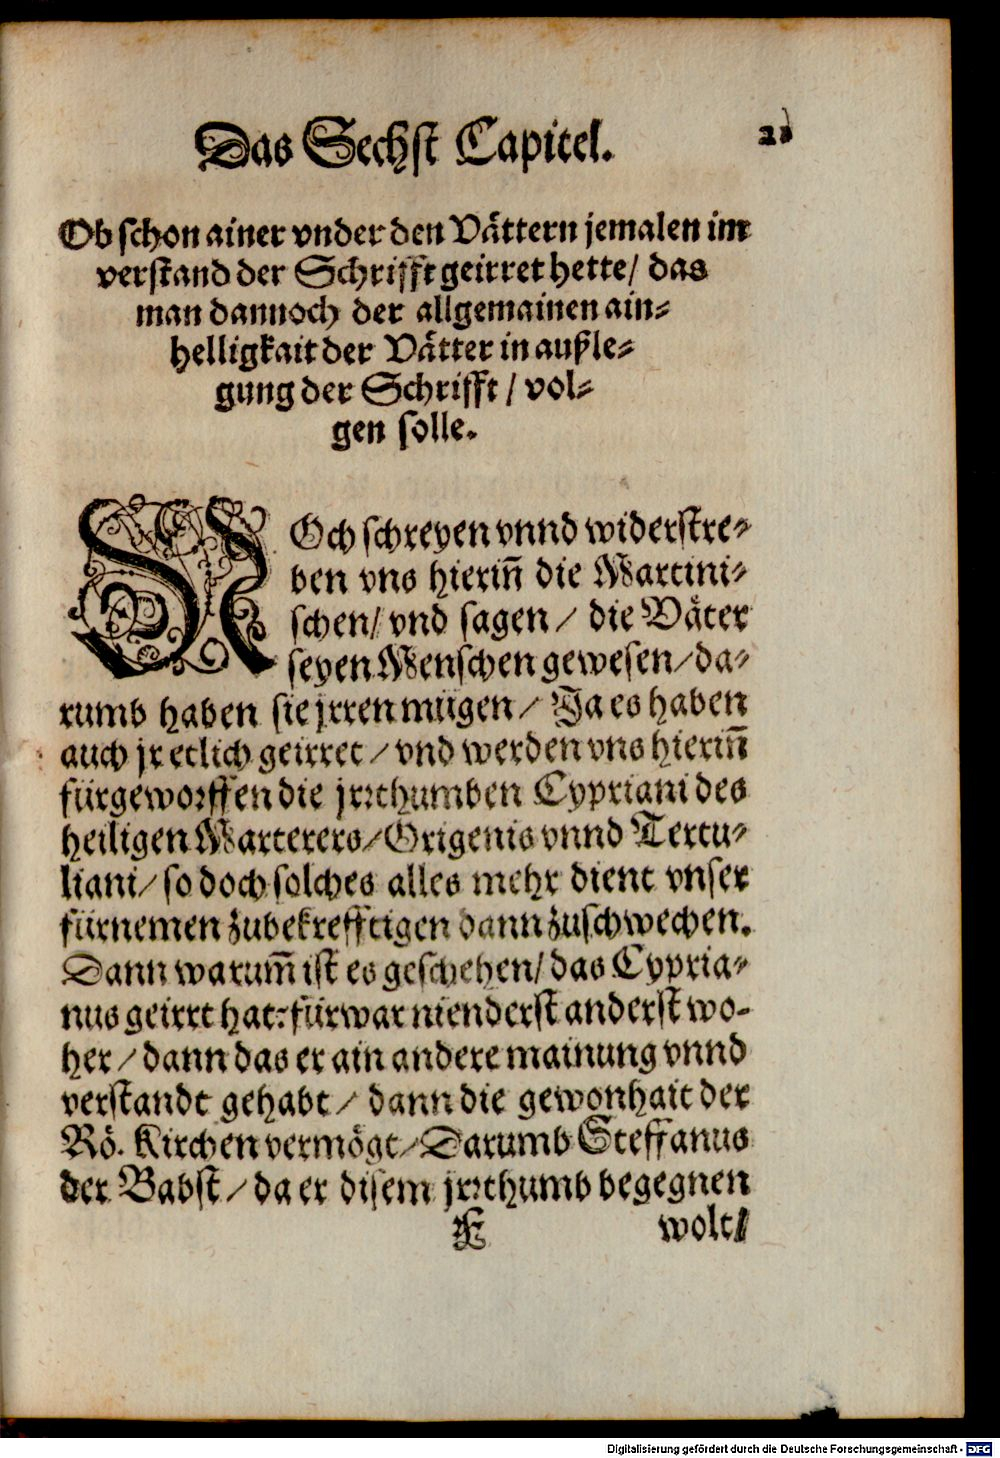 Das Sechst Capitel.
21
Ob schon ainer vnder den Vättern jemalen im
verstand der Schrifft geirret hette / das
man dannoch der allgemainen ain⸗
helligkait der Vätter in außle⸗
gung der Schrifft / vol⸗
gen solle.
NOch schreyen vnnd widerstre⸗
ben vns hierin̄ die Martini⸗
schen / vnd sagen / die Väter
seyen Menschen gewesen / da⸗
rumb haben sie jrren mügen / Ja es haben
auch jr etlich geirret / vnd werden vns hierin̄
fürgeworffen die jrrthumben Cypriani des
heiligen Marterers / Origenis vnnd Tertu⸗
liani / so doch solches alles mehr dient vnser
fürnemen zubekrefftigen dann zuschwechen.
Dann warum̄ ist es geschehen / das Cypria⸗
nus geirrt hat: fürwar nienderst anderst wo⸗
her / dann das er ain andere mainung vnnd
verstandt gehabt / dann die gewonhait der
Rö. Kirchen vermögt / Darumb Steffanus
der Babst / da er disem jrrthumb begegnen
F wolt /
Digitalisierung gefördert durch die Deutsche Forschungsgemeinschaft - DFG